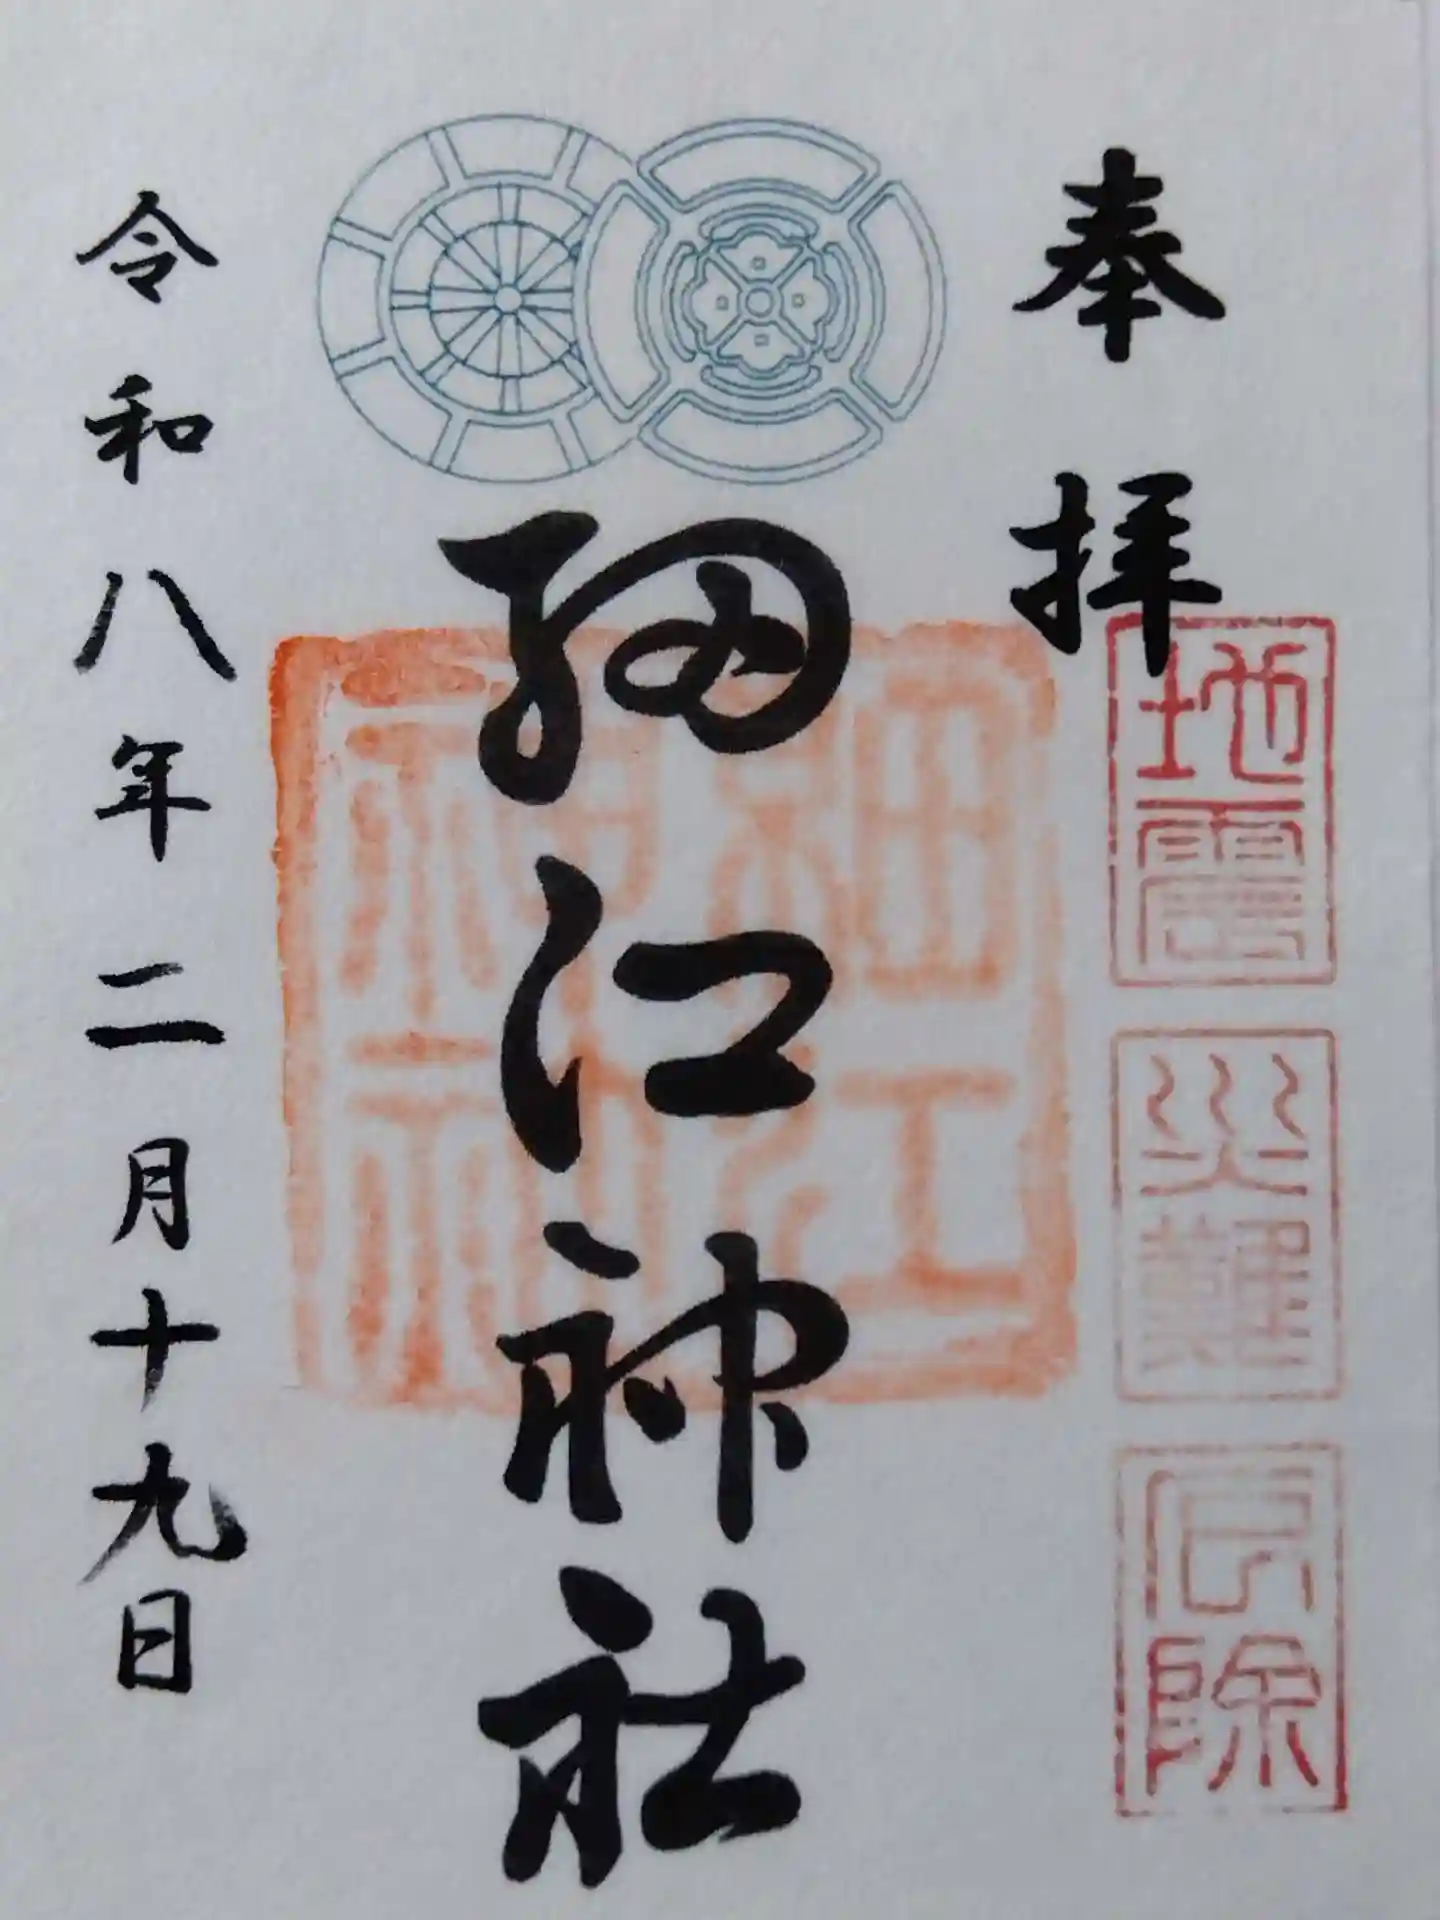 奉拝
地震
災難
厄除
細江神社
細江
神社
令和八年二月十九日